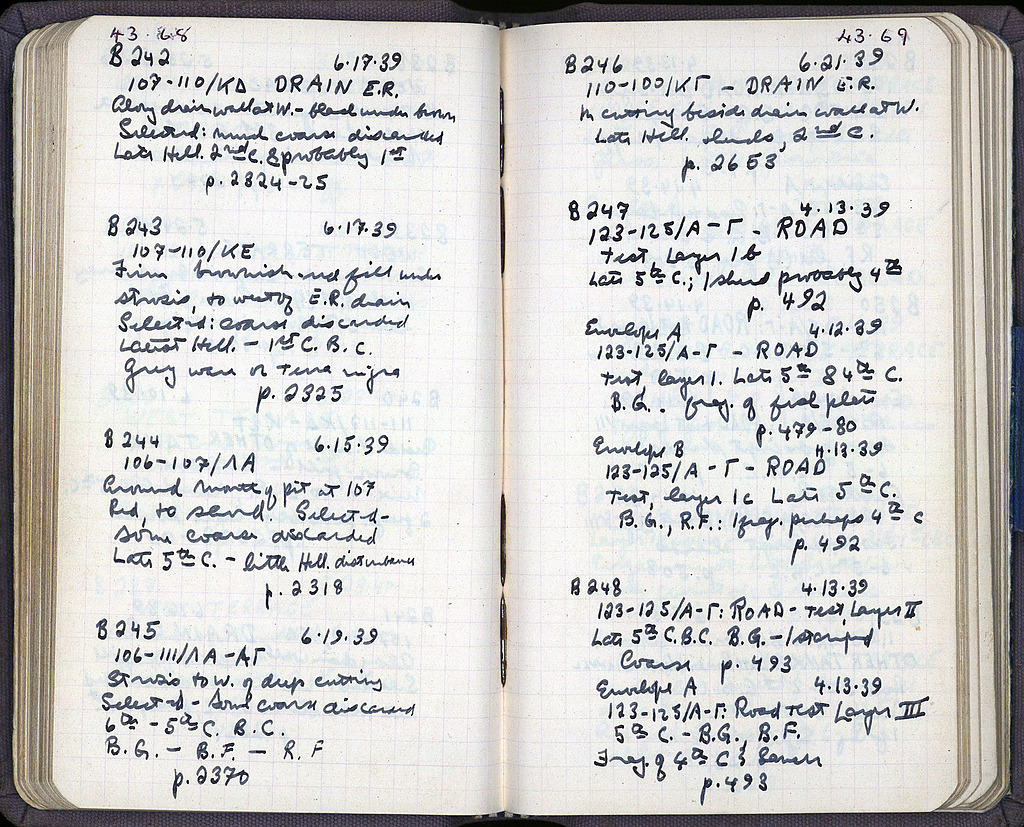 43·68
B 242 6·17·39
107-110/ΚΔ DRAIN E.R.
Along drain wall at W. - black under brown
Selected: much coarse discarded
Late Hell. 2nd C. & probably 1st
p. 2324-25
B 243 6·17·39
107-110/ΚΕ
Firm brownish red fill under
strosis, to west of E.R. drain
Selected: coarse discarded
Latest Hell. - 1st C. B.C.
Grey ware or terra nigra
p. 2325
B 244 6·15·39
106-107/ΛΑ
Around mouth of pit at 107
Red, to sherd. Selected-
Some coarse discarded
Late 5th C. - little Hell. disturbance
p. 2318
B 245 6·19·39
106-111/ΛΑ-ΛΓ
Strosis to W. of deep cutting
Selected - some coarse discarded
6th - 5th C. B.C.
B.G. - B.F. - R.F
p. 2370
43·69
B 246 6·21·39
110-100/ΚΓ - DRAIN E.R.
In cutting beside drain wall at W.
Late Hell. sherds, 2nd C
p. 2653
B 247 4·13·39
123-125/Α-Γ - ROAD
Test, Layer 1b
Late 5th C.; 1 sherd probably 4th
p. 492
Envelope A 4·12·39
123-125/Α-Γ - ROAD
Test, layer 1. Late 5th & 4th C.
B.G.. frag. of fish plate
p. 479-80
Envelope B 4·13·39
123-125/Α-Γ - ROAD
Test, layer 1c Late 5th C.
B.G., R.F.: 1 frag. perhaps 4th C
p. 492
B 248 4·13·39
123-125/Α-Γ: ROAD - Test Layer II
Late 5th C. B.C. B.G. - 1 stamped
Coarse p. 493
Envelope A 4·13·39
123-125/Α-Γ: Road test Layer III
5th C. - B.G., B.F.
Frag. of 4th C
p. 493